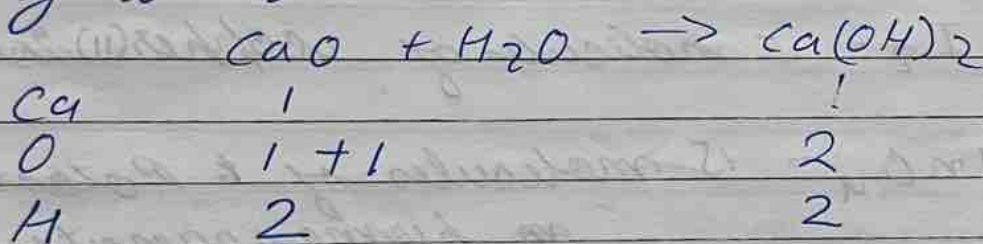 CaO + H2O → Ca(OH)2
Ca 1 1
O 1 + 1 2
H 2 2